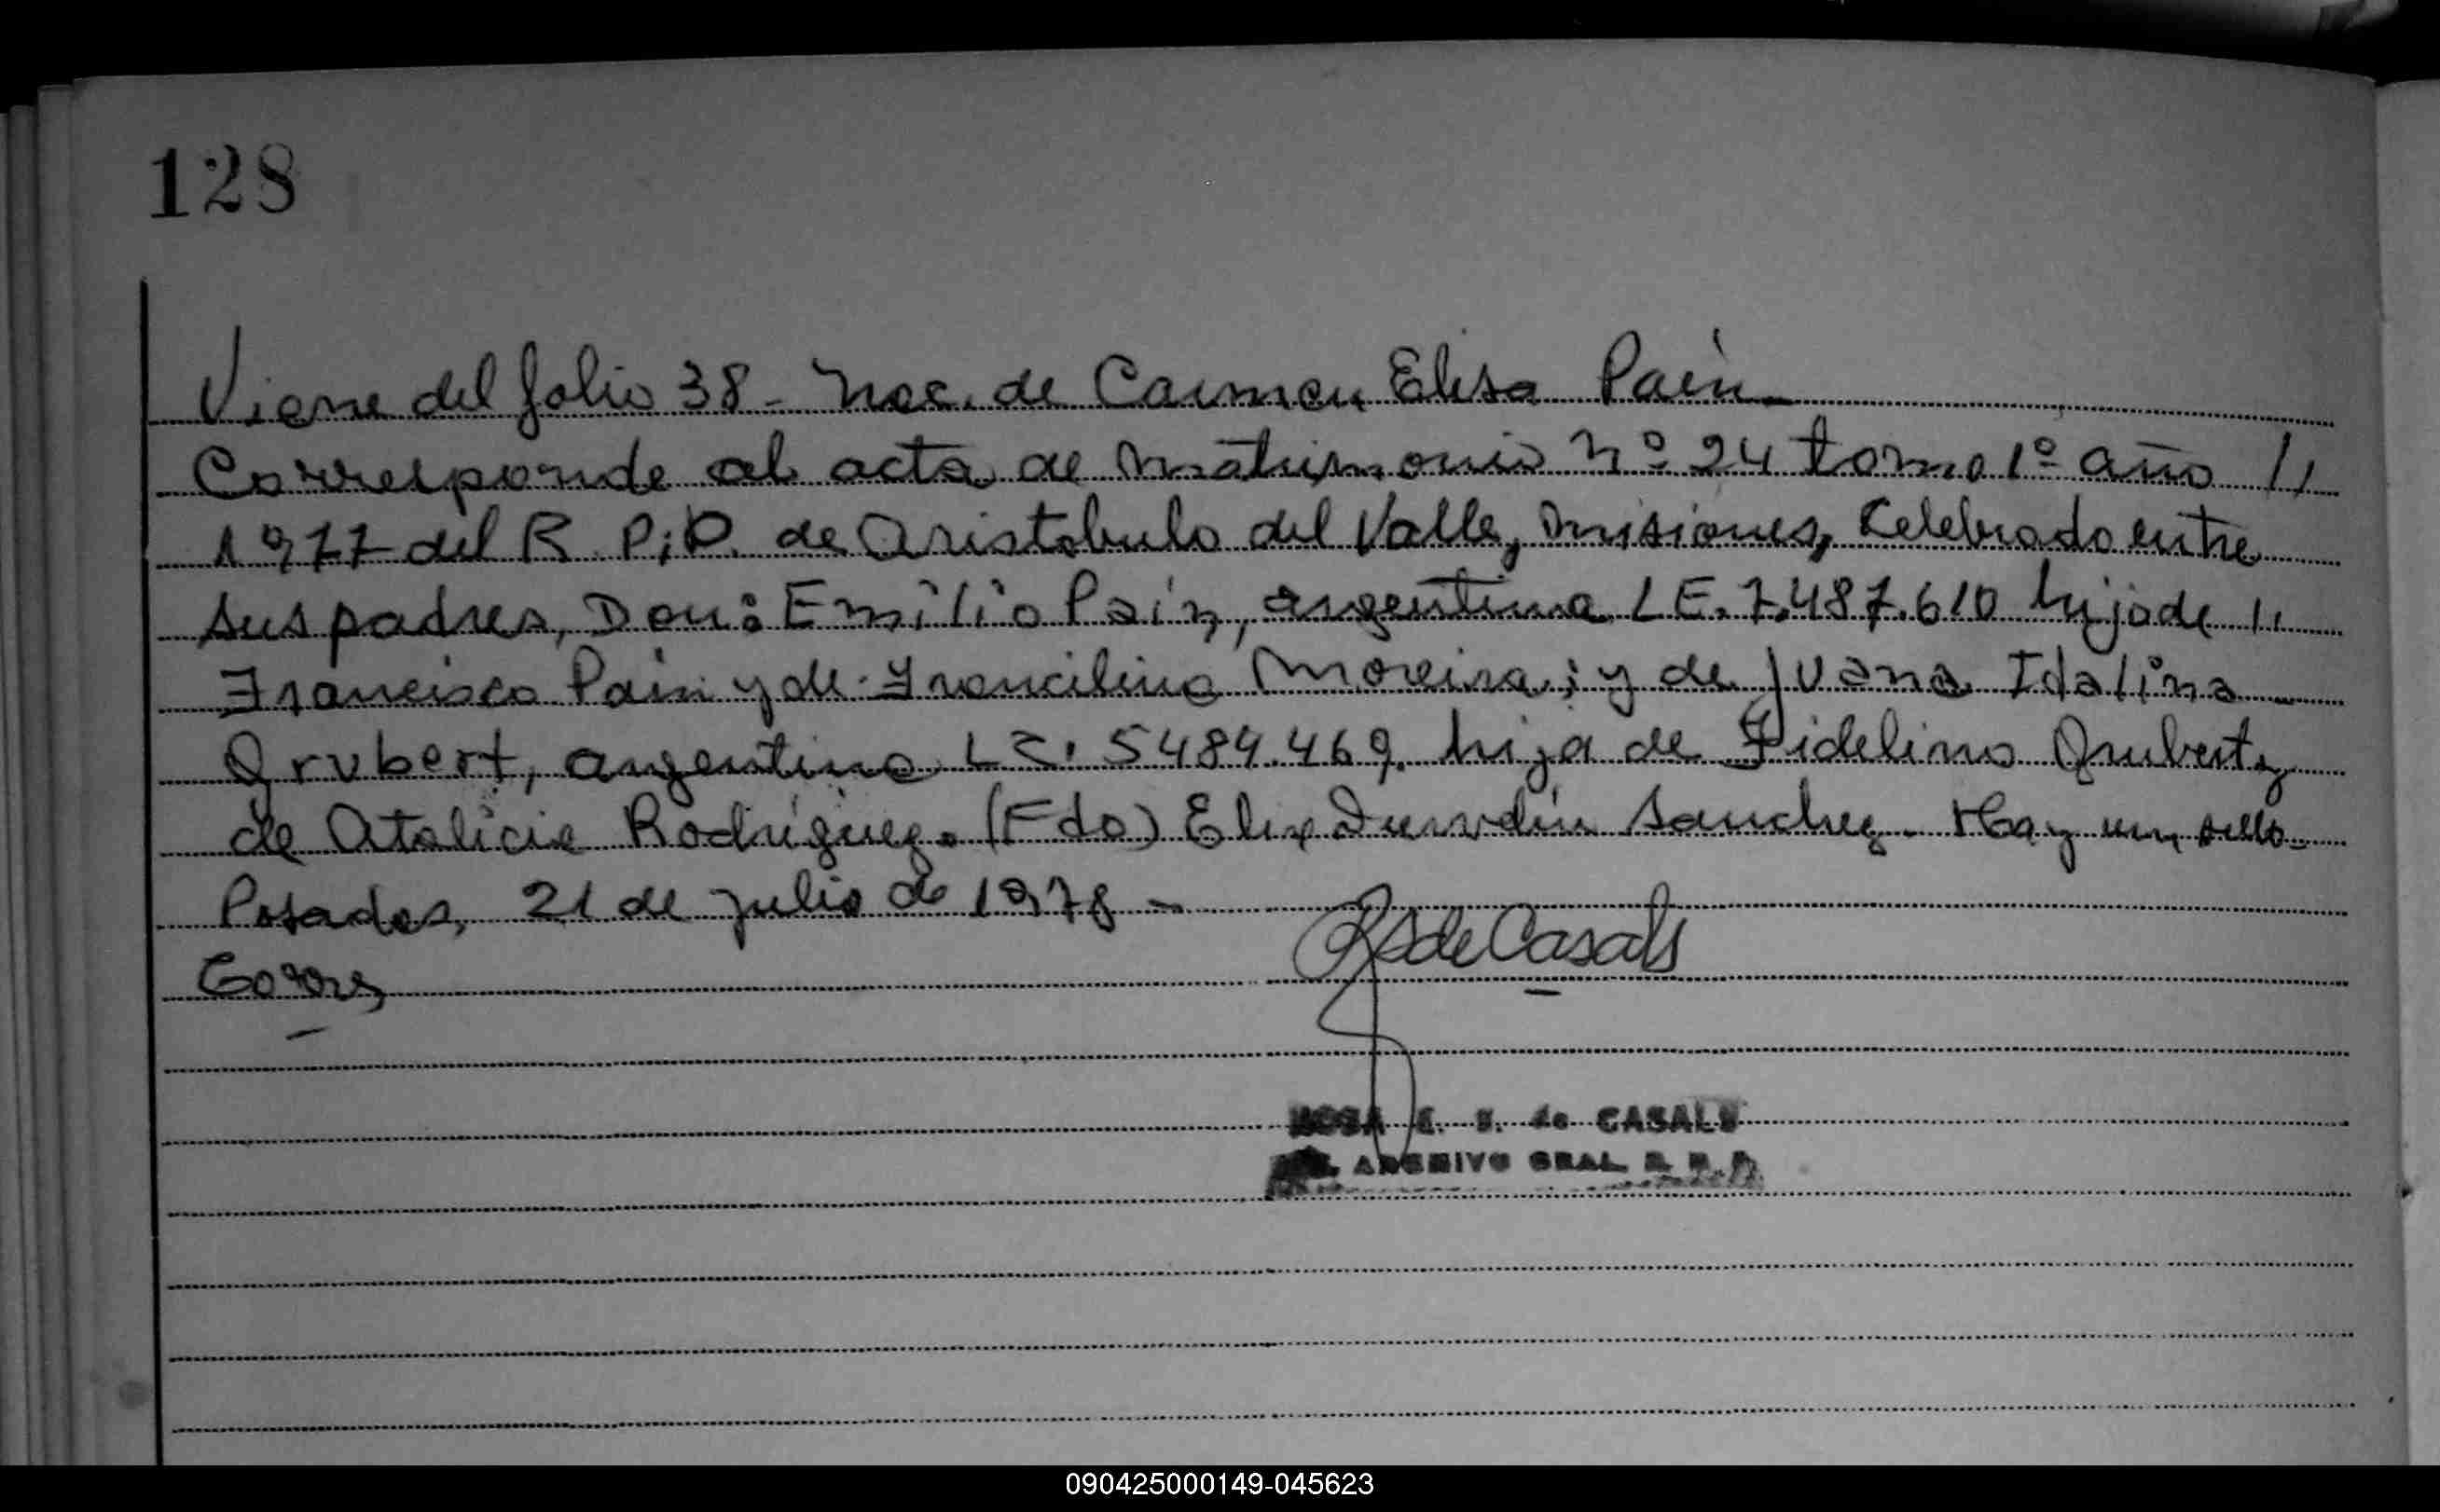 128
Viene del folio 38 - Nac. de Carmen Elisa Paín
Corresponde al acta de matrimonio nº 24 tomo 1º año //
1977 del R. P; D. de Aristobulo del Valle, Misiones, Celebrado entre
sus padres, Don: Emilio Paín, argentino LE. 7.487.610 hijo de //
Francisco Pain y de Francilina Moreira; y de Juana Idalina
Grubert, argentina LC. 5484.469. hija de Fidelino Grubert y
de Atalicie Rodríguez. (Fdo) Sanchez. Hay un sello.
Posadas, 21 de julio de 1978 -
RS de Casals
ROSA E. S. de CASALS
ARCHIVO GRAL. R. P.
090425000149-045623